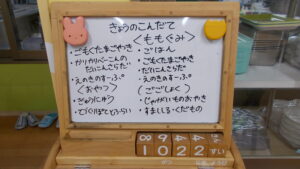 きょうのこんだて
<ももぐみ>
・ごもくたまごやき
・かりかりベーこんの
だいこんさらだ
・えのきのすーぷ
<おやつ>
・ぎゅうにゅう
・ごはん
・ごもくたまごやき
・だいこんさらだ
・えのきのすーぷ
(ごごしょく)
・じゃがいものおやき
・くだもの
8 9 4 4
1 0 2 2 すい